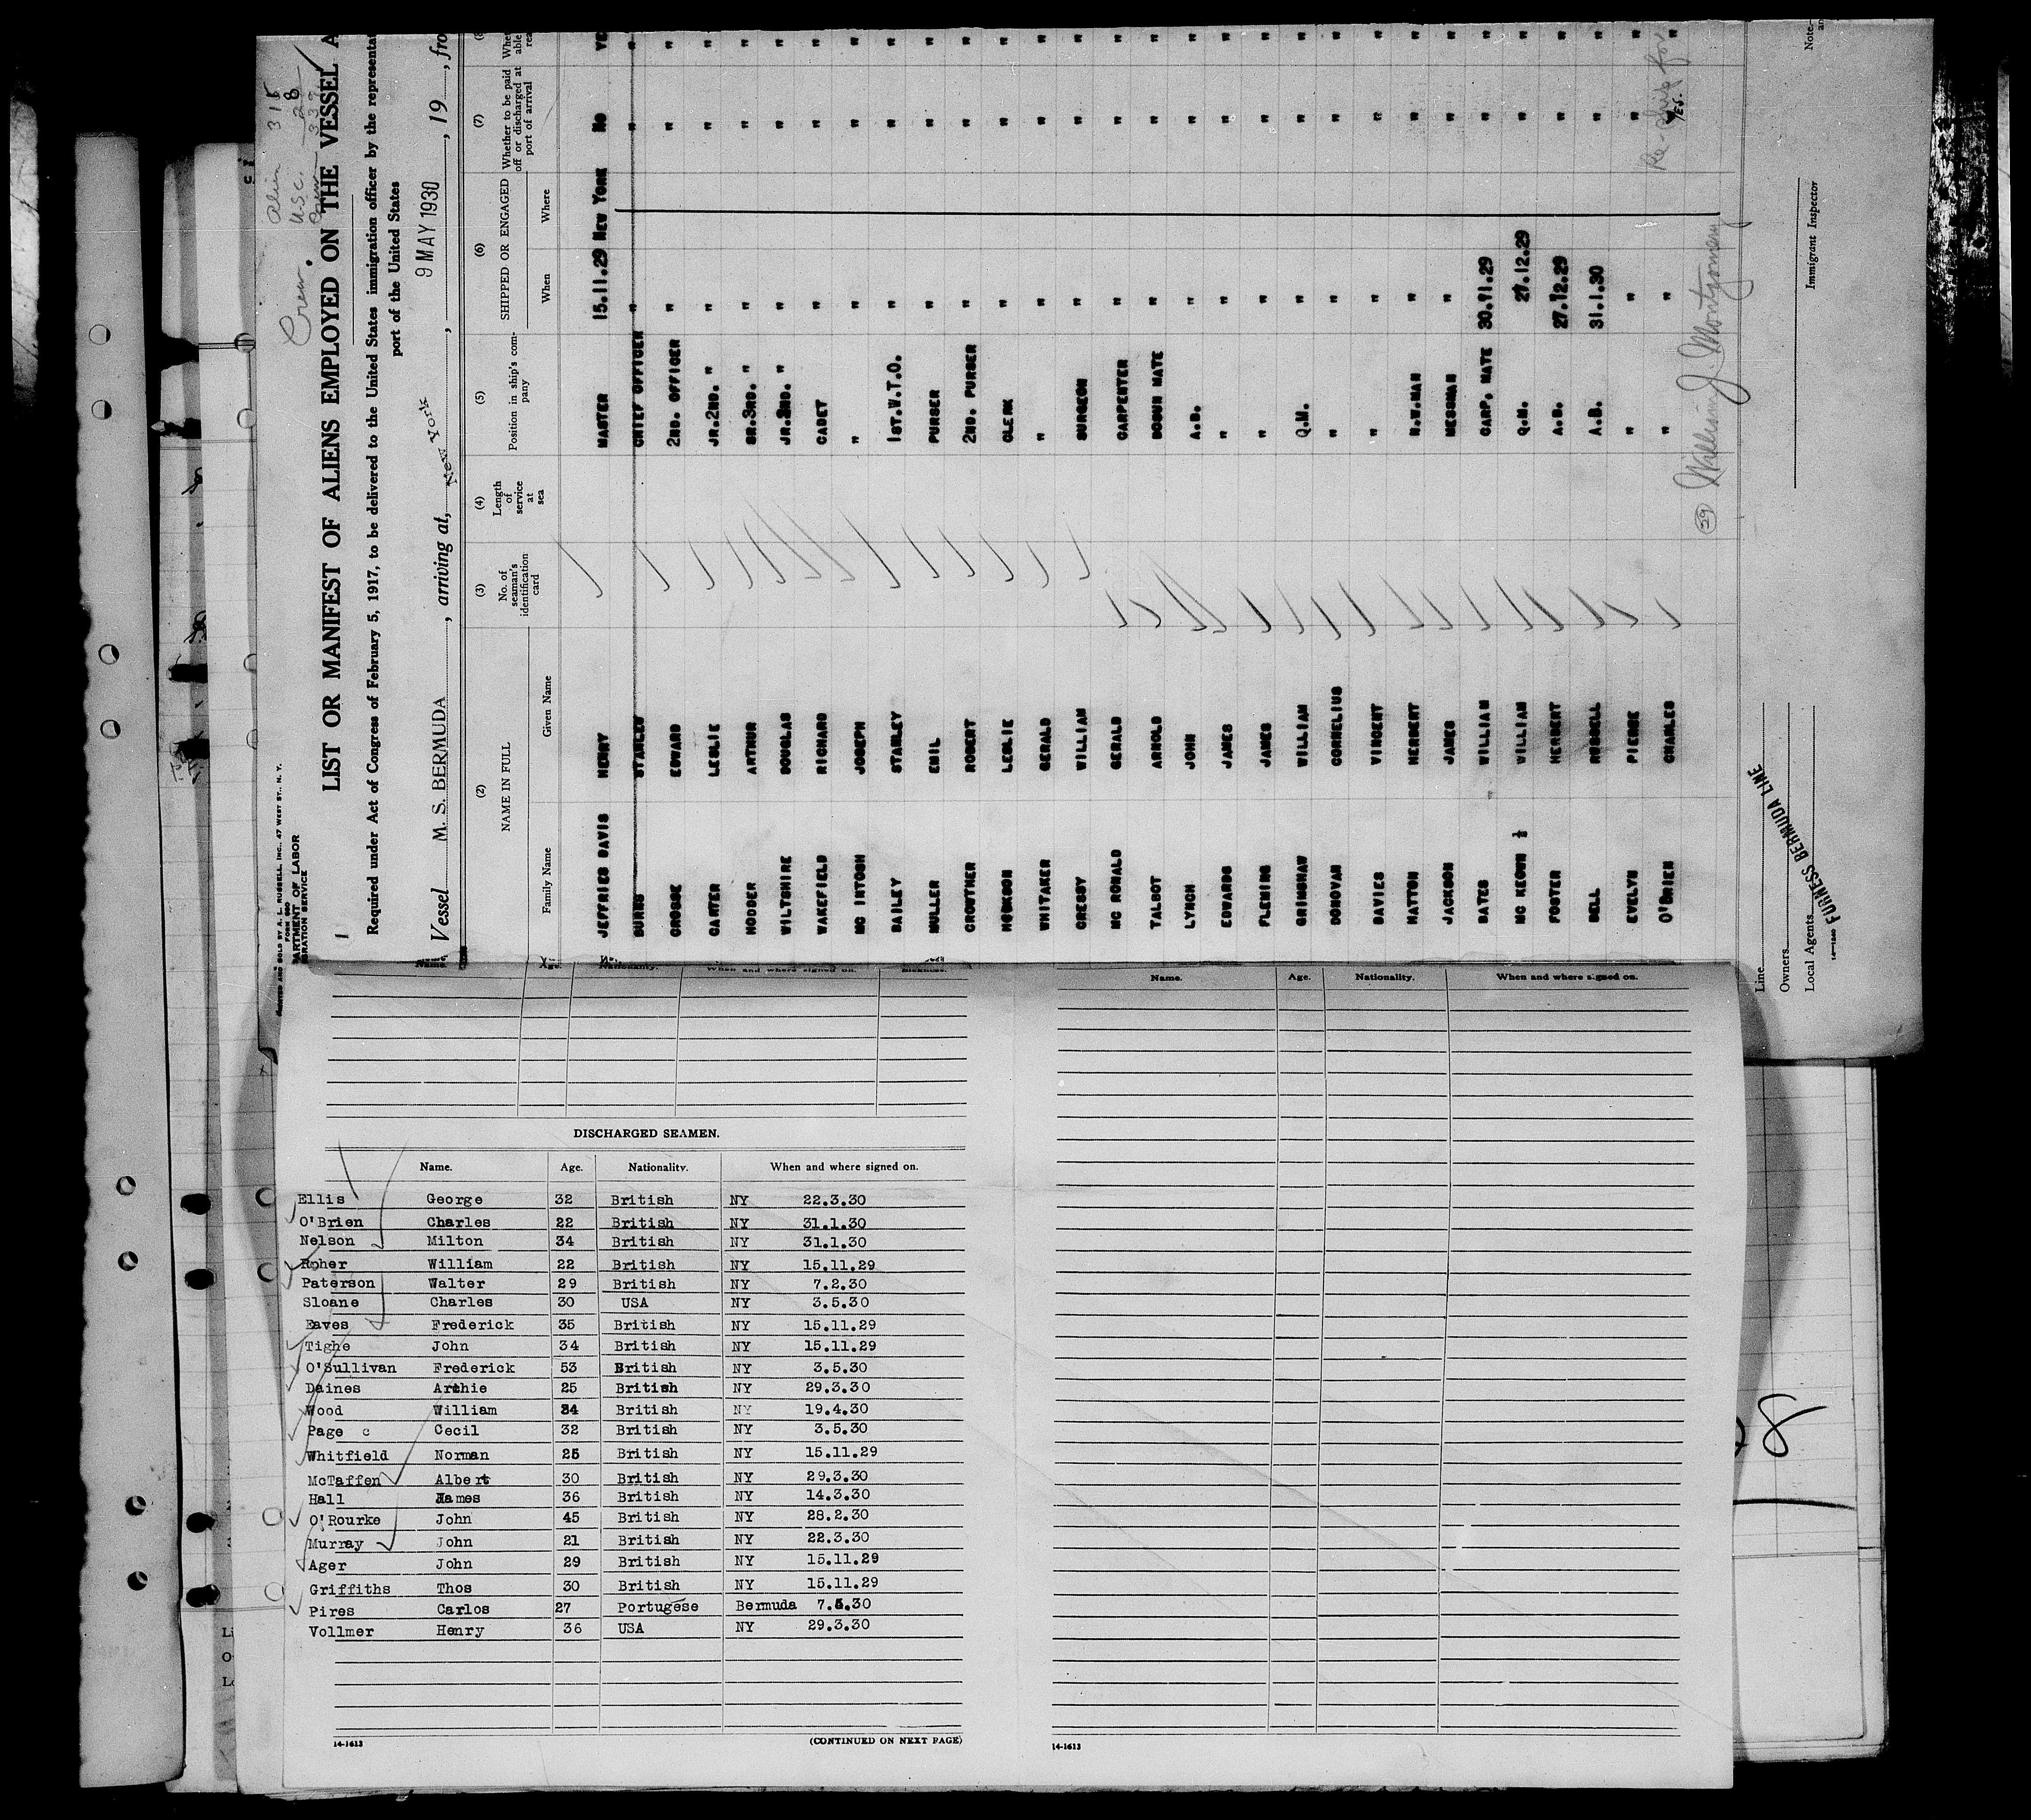 PRINTED AND SOLD BY A. L. RUSSELL, INC., 47 WEST ST., N. Y.
FORM 680
ARTMENT OF LABOR
IGRATION SERVICE
Crew.
alien 315
U.S.C. 28
LIST OR MANIFEST OF ALIENS EMPLOYED ON THE VESSEL A
Required under Act of Congress of February 5, 1917, to be delivered to the United States immigration officer by the representat
port of the United States
Vessel M. S. BERMUDA, arriving at, New York, 9 MAY 1930, 19, fro
(2) (3) (4) (5) (6) (7)
NAME IN FULL No. of seaman's identification card Length of service at sea Position in ship's company SHIPPED OR ENGAGED Whether to be paid off or discharged at port of arrival
Family Name Given Name When Where
JEFFRIES DAVIS HENRY MASTER 15.11.29 NEW YORK No YE
BURNS STANLEY CHIEF OFFICER " " "
CROSSE EDWARD 2ND. OFFICER " " "
CARTER LESLIE JR.2ND. " " " "
HODDER ARTHUR SR.3RD. " " " "
WILTSHIRE DOUGLAS JR.3RD. " " " "
WAKEFIELD RICHARD CADET " " "
MC INTOSH JOSEPH " " " "
BAILEY STANLEY 1ST.W.T.O. " " "
MULLER EMIL PURSER " " "
CROWTHER ROBERT 2ND. PURSER " " "
HODKSON LESLIE CLERK " " "
WHITAKER GERALD " " " "
CRESSY WILLIAM SURGEON " " "
MC RONALD GERALD CARPENTER " " "
TALBOT ARNOLD BOSUN MATE " " "
LYNCH JOHN A.B. " " "
EDWARDS JAMES " " " "
FLEMING JAMES " " " "
GRIMSHAW WILLIAM Q.M. " " "
DONOVAN CORNELIUS " " " "
DAVIES VINCENT " " " "
HATTON HERBERT N.W.MAN " " "
JACKSON JAMES MESSMAN " " "
BATES WILLIAM CARP. MATE 30.11.29 " "
MC KEOWN WILLIAM Q.M. 27.12.29 " "
FOSTER HERBERT A.B. 27.12.29 " "
BELL RUSSELL A.B. 31.1.30 " "
EVELYN PIERRE " " " "
O'BRIEN CHARLES " " Yes. "
Re-ship for
29 William J. Montgomery
Immigrant Inspector
Line
Owners
Local Agents
FURNESS BERMUDA LINE
Note—
Name. Age. Nationality. When and where signed on.
Name. Age. Nationality. When and where signed on.
DISCHARGED SEAMEN.
Name. Age. Nationality. When and where signed on.
Ellis George 32 British NY 22.3.30
O'Brien Charles 22 British NY 31.1.30
Nelson Milton 34 British NY 31.1.30
Roher William 22 British NY 15.11.29
Paterson Walter 29 British NY 7.2.30
Sloane Charles 30 USA NY 3.5.30
Eaves Frederick 35 British NY 15.11.29
Tighe John 34 British NY 15.11.29
O'Sullivan Frederick 53 British NY 3.5.30
Daines Archie 25 British NY 29.3.30
Wood William 34 British NY 19.4.30
Page c Cecil 32 British NY 3.5.30
Whitfield Norman 25 British NY 15.11.29
McTaffen Albert 30 British NY 29.3.30
Hall James 36 British NY 14.3.30
O'Rourke John 45 British NY 28.2.30
Murray John 21 British NY 22.3.30
Ager John 29 British NY 15.11.29
Griffiths Thos 30 British NY 15.11.29
Pires Carlos 27 Portugese Bermuda 7.5.30
Vollmer Henry 36 USA NY 29.3.30
14-1613 (CONTINUED ON NEXT PAGE)
14-1613
8